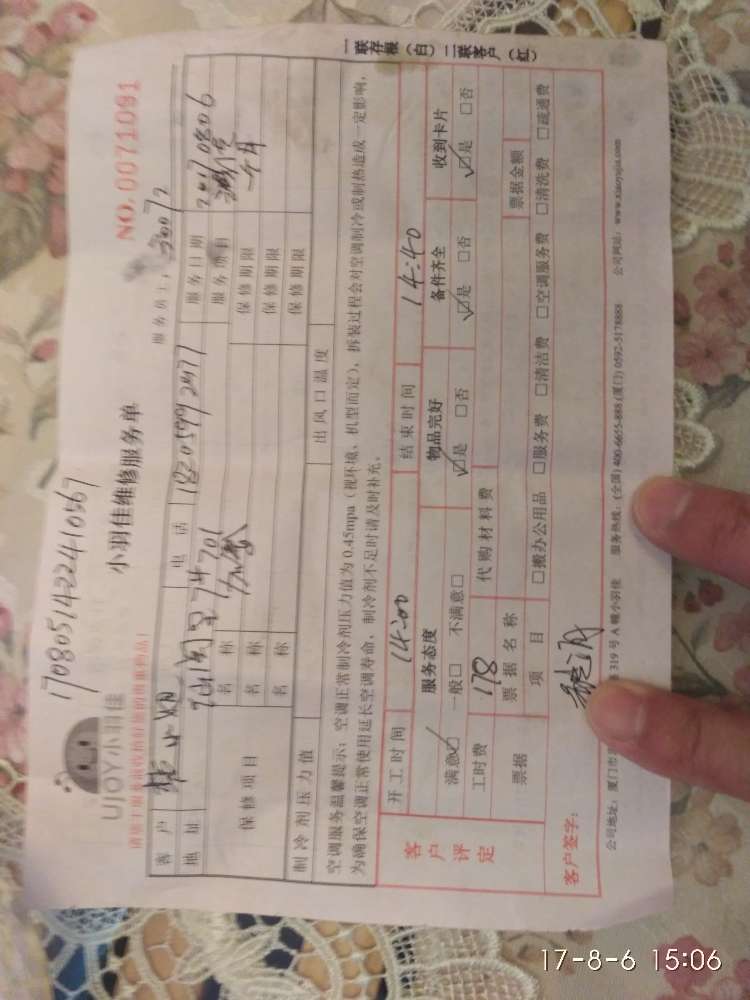 17080514224410567
UJOY小羽佳
小羽佳维修服务单
NO.0071091
服务员工：30072
客户 电话 18205992577 服务日期 20170806
地址 服务费目
保修项目 名称 保修期限 一个月
名称 保修期限
名称 保修期限
制冷剂压力值 出风口温度
空调服务温馨提示：空调正常制冷剂压力值为0.45mpa（视环境、机型而定），拆装过程会对空调制冷或制热造成一定影响，
为确保空调正常使用延长空调寿命，制冷剂不足时请及时补充。
一联存根（白）二联客户（红）
客户评定
开工时间 14:00 结束时间 14:40
服务态度 物品完好 备件齐全 收到卡片
满意☑ 一般□ 不满意□ ☑是 □否 ☑是 □否 ☑是 □否
工时费 178 代购材料费
票据 票据名称 票据金额
项目 □搬办公用品 □服务费 □清洁费 □空调服务费 □清洗费 □疏通费
客户签字：
公司地址：厦门市 319号A幢小羽佳 服务热线：(全国)400-6655-888 (厦门)0592-5178888 公司网站：www.xiaoyujia.com
17-8-6 15:06